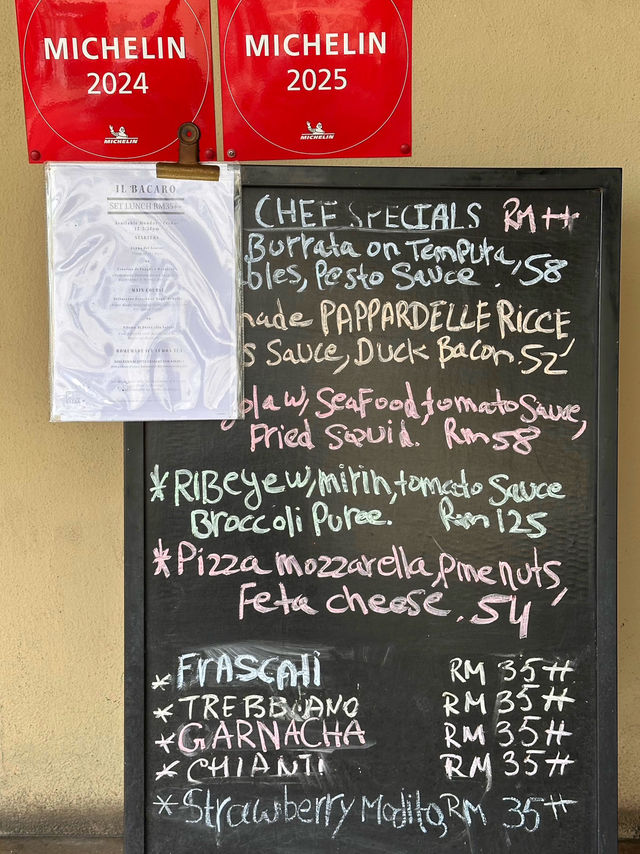 MICHELIN
2024
MICHELIN
MICHELIN
2025
MICHELIN
IL BACARO
SET LUNCH RM35++
STARTERS
MAIN COURSE
CHEF SPECIALS RM ++
Burrata on Tempura,
bles, Pesto Sauce. 58
made PAPPARDELLE RICCE
s Sauce, Duck Bacon. 52'
gola w, SeaFood, tomato Sauce,
Fried Squid. Rm 58
* RIBeye w, mirin, tomato Sauce
Broccoli Puree. Rm 125
* Pizza mozzarella, Pine nuts,
Feta cheese. 54'
* FRASCATI RM 35++
* TREBBIANO RM 35++
* GARNACHA RM 35++
* CHIANTI RM 35++
* Strawberry Modito RM 35++